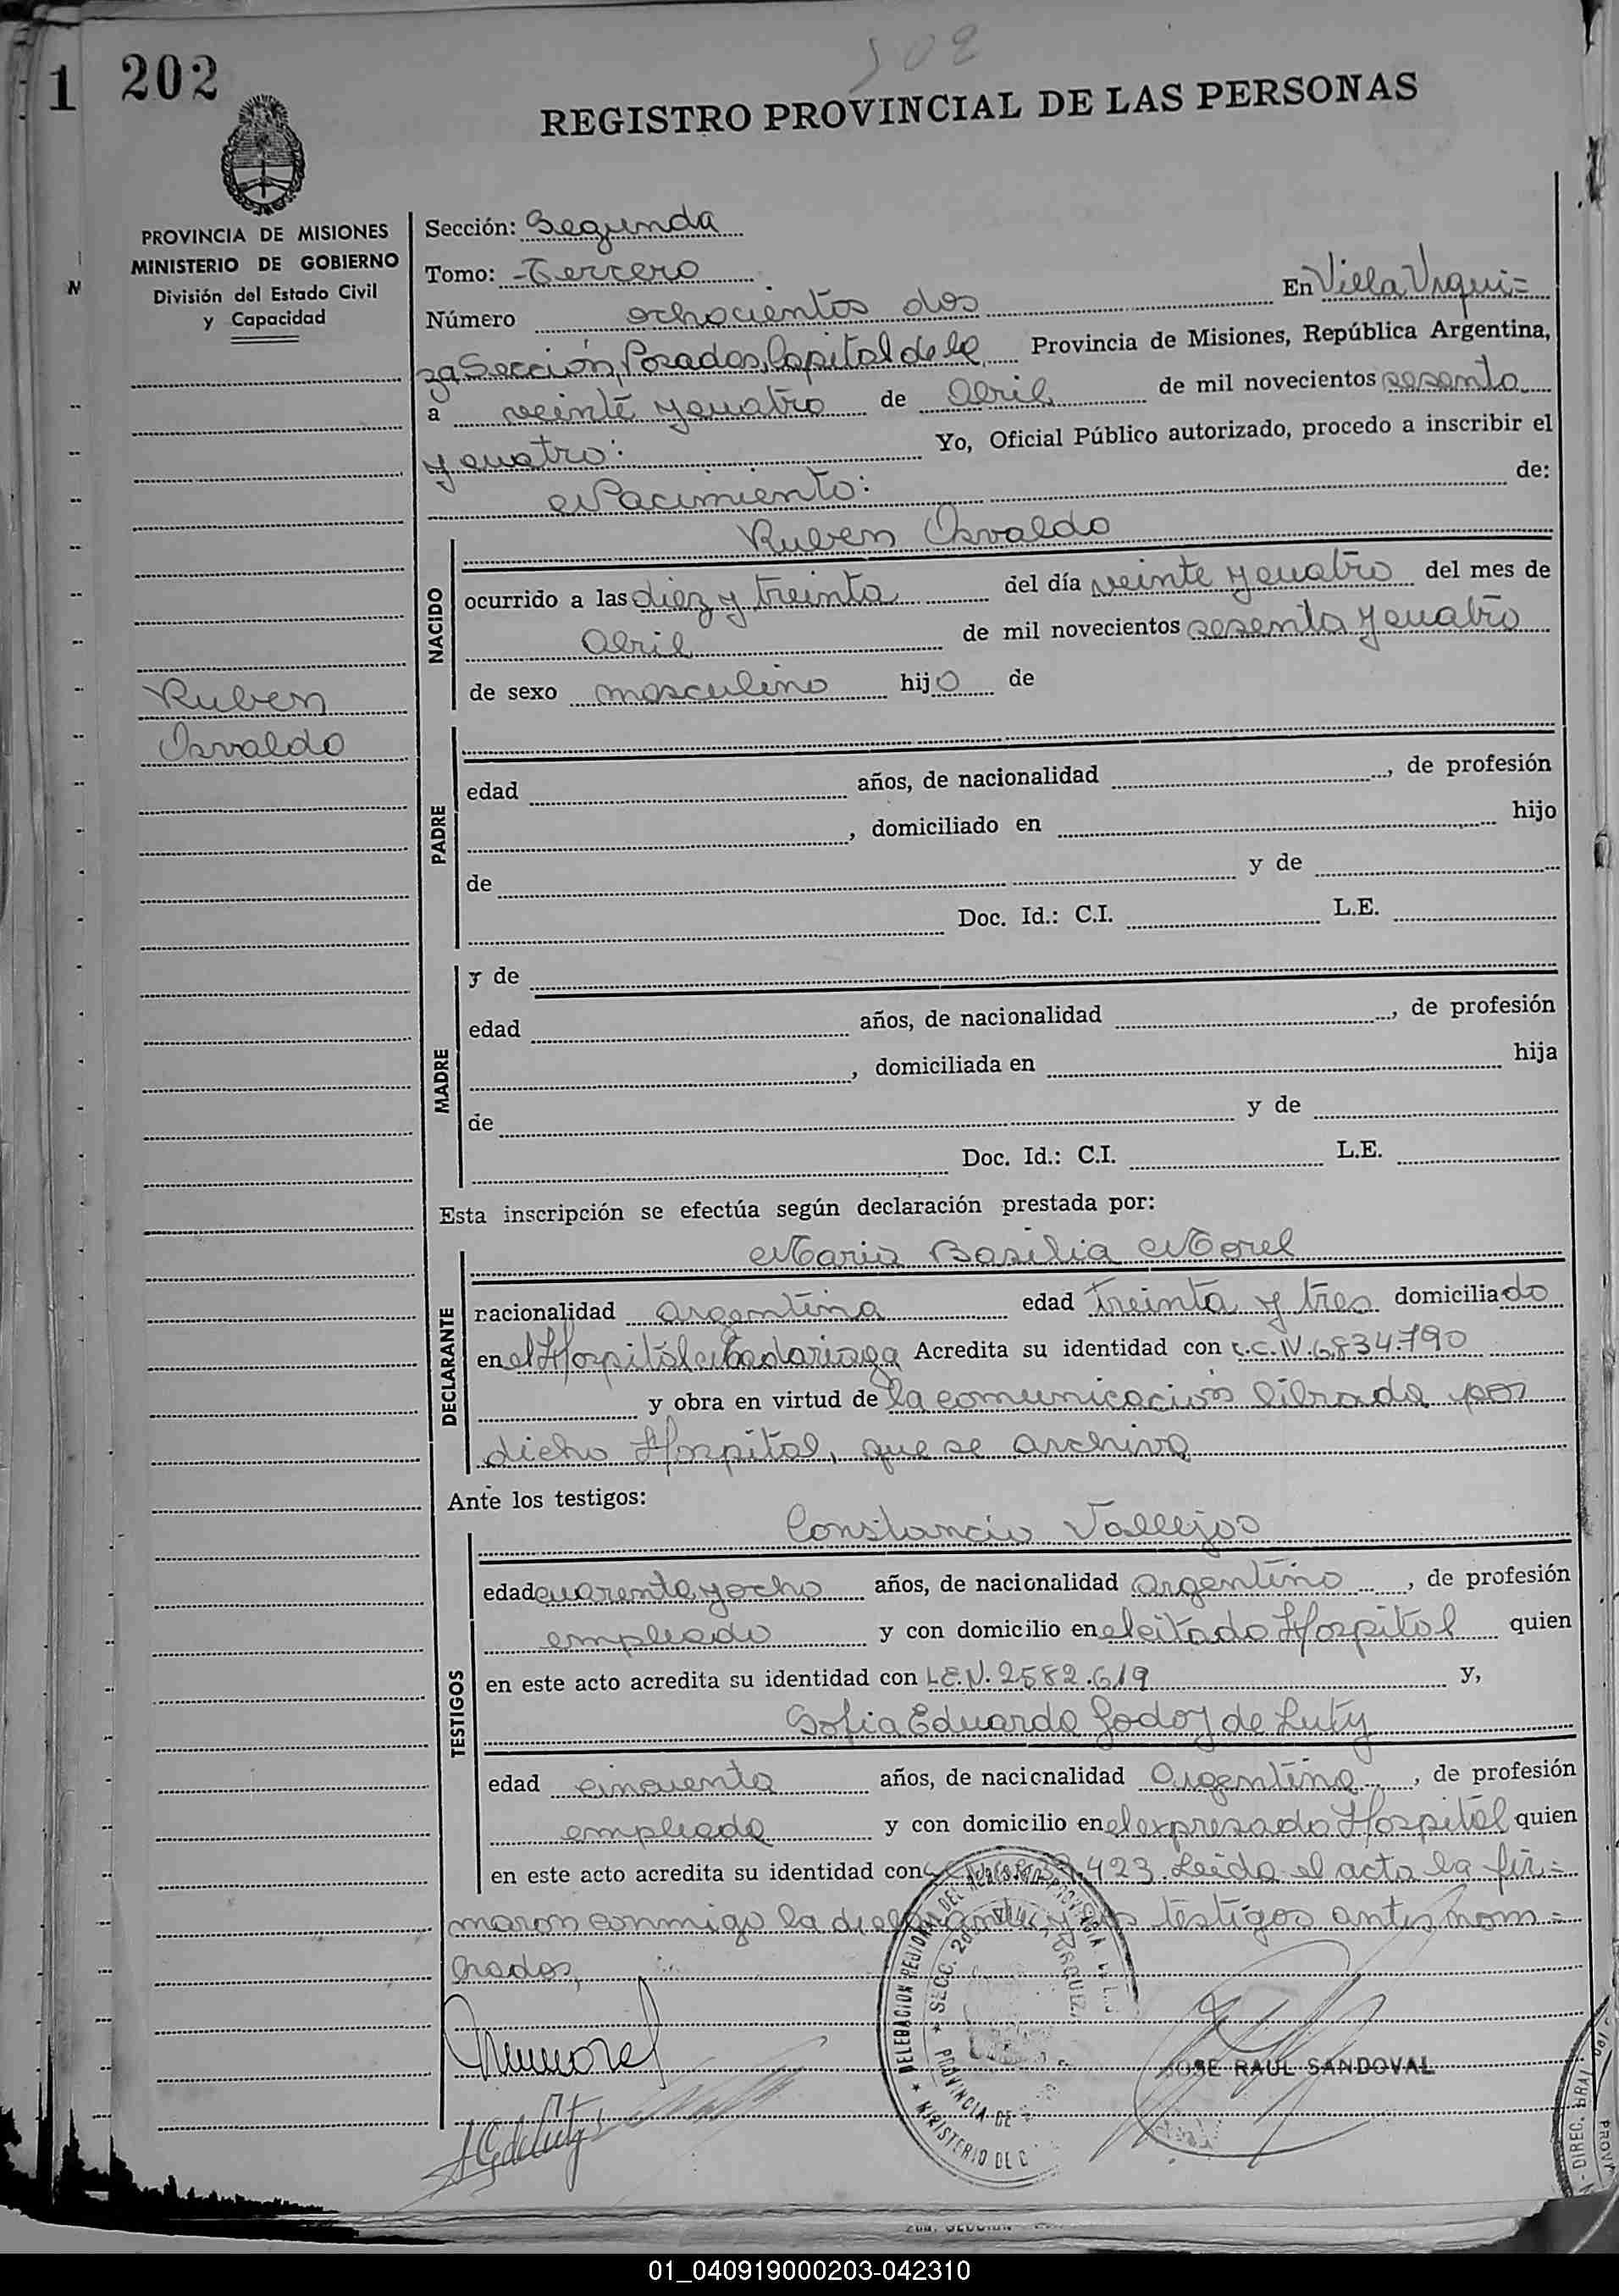 302
1 202
REGISTRO PROVINCIAL DE LAS PERSONAS
PROVINCIA DE MISIONES
MINISTERIO DE GOBIERNO
División del Estado Civil
y Capacidad
Ruben
Osvaldo
Sección: Segunda
Tomo: Tercero
Número ochocientos dos En Villa Urqui=
za Sección, Posadas, Capital de la Provincia de Misiones, República Argentina,
a veinte y cuatro de Abril de mil novecientos sesenta
y cuatro: Yo, Oficial Público autorizado, procedo a inscribir el
Nacimiento: de:
Ruben Osvaldo
NACIDO
ocurrido a las diez y treinta del día veinte y cuatro del mes de
Abril de mil novecientos sesenta y cuatro
de sexo masculino hijo de
PADRE
edad años, de nacionalidad , de profesión
, domiciliado en hijo
de y de
Doc. Id.: C.I. L.E.
MADRE
y de
edad años, de nacionalidad , de profesión
, domiciliada en hija
de y de
Doc. Id.: C.I. L.E.
Esta inscripción se efectúa según declaración prestada por:
Maria Basilia Morel
DECLARANTE
nacionalidad argentina edad treinta y tres domiciliado
en el Hospital Madariaga Acredita su identidad con L.C.N. 6834.790
y obra en virtud de la comunicación librada por
dicho Hospital, que se archiva
Ante los testigos:
Constancio Vallejos
TESTIGOS
edad cuarenta y ocho años, de nacionalidad argentino , de profesión
empleado y con domicilio en el citado Hospital quien
en este acto acredita su identidad con L.E.N. 2582.619 y,
Sofia Eduarda Godoy de Luty
edad cincuenta años, de nacionalidad Argentina , de profesión
empleada y con domicilio en el expresado Hospital quien
en este acto acredita su identidad con 423. Leida el acta la fir=
maron conmigo la declarante y los testigos antes nom=
brados,
JOSE RAUL SANDOVAL
DELEGACION REGIONAL DEL REGISTRO PROVINCIAL
SECC. 2da. VILLA URQUIZA
PROVINCIA DE
MINISTERIO DE G
DIREC. GRAL.
PROV
01_040919000203-042310